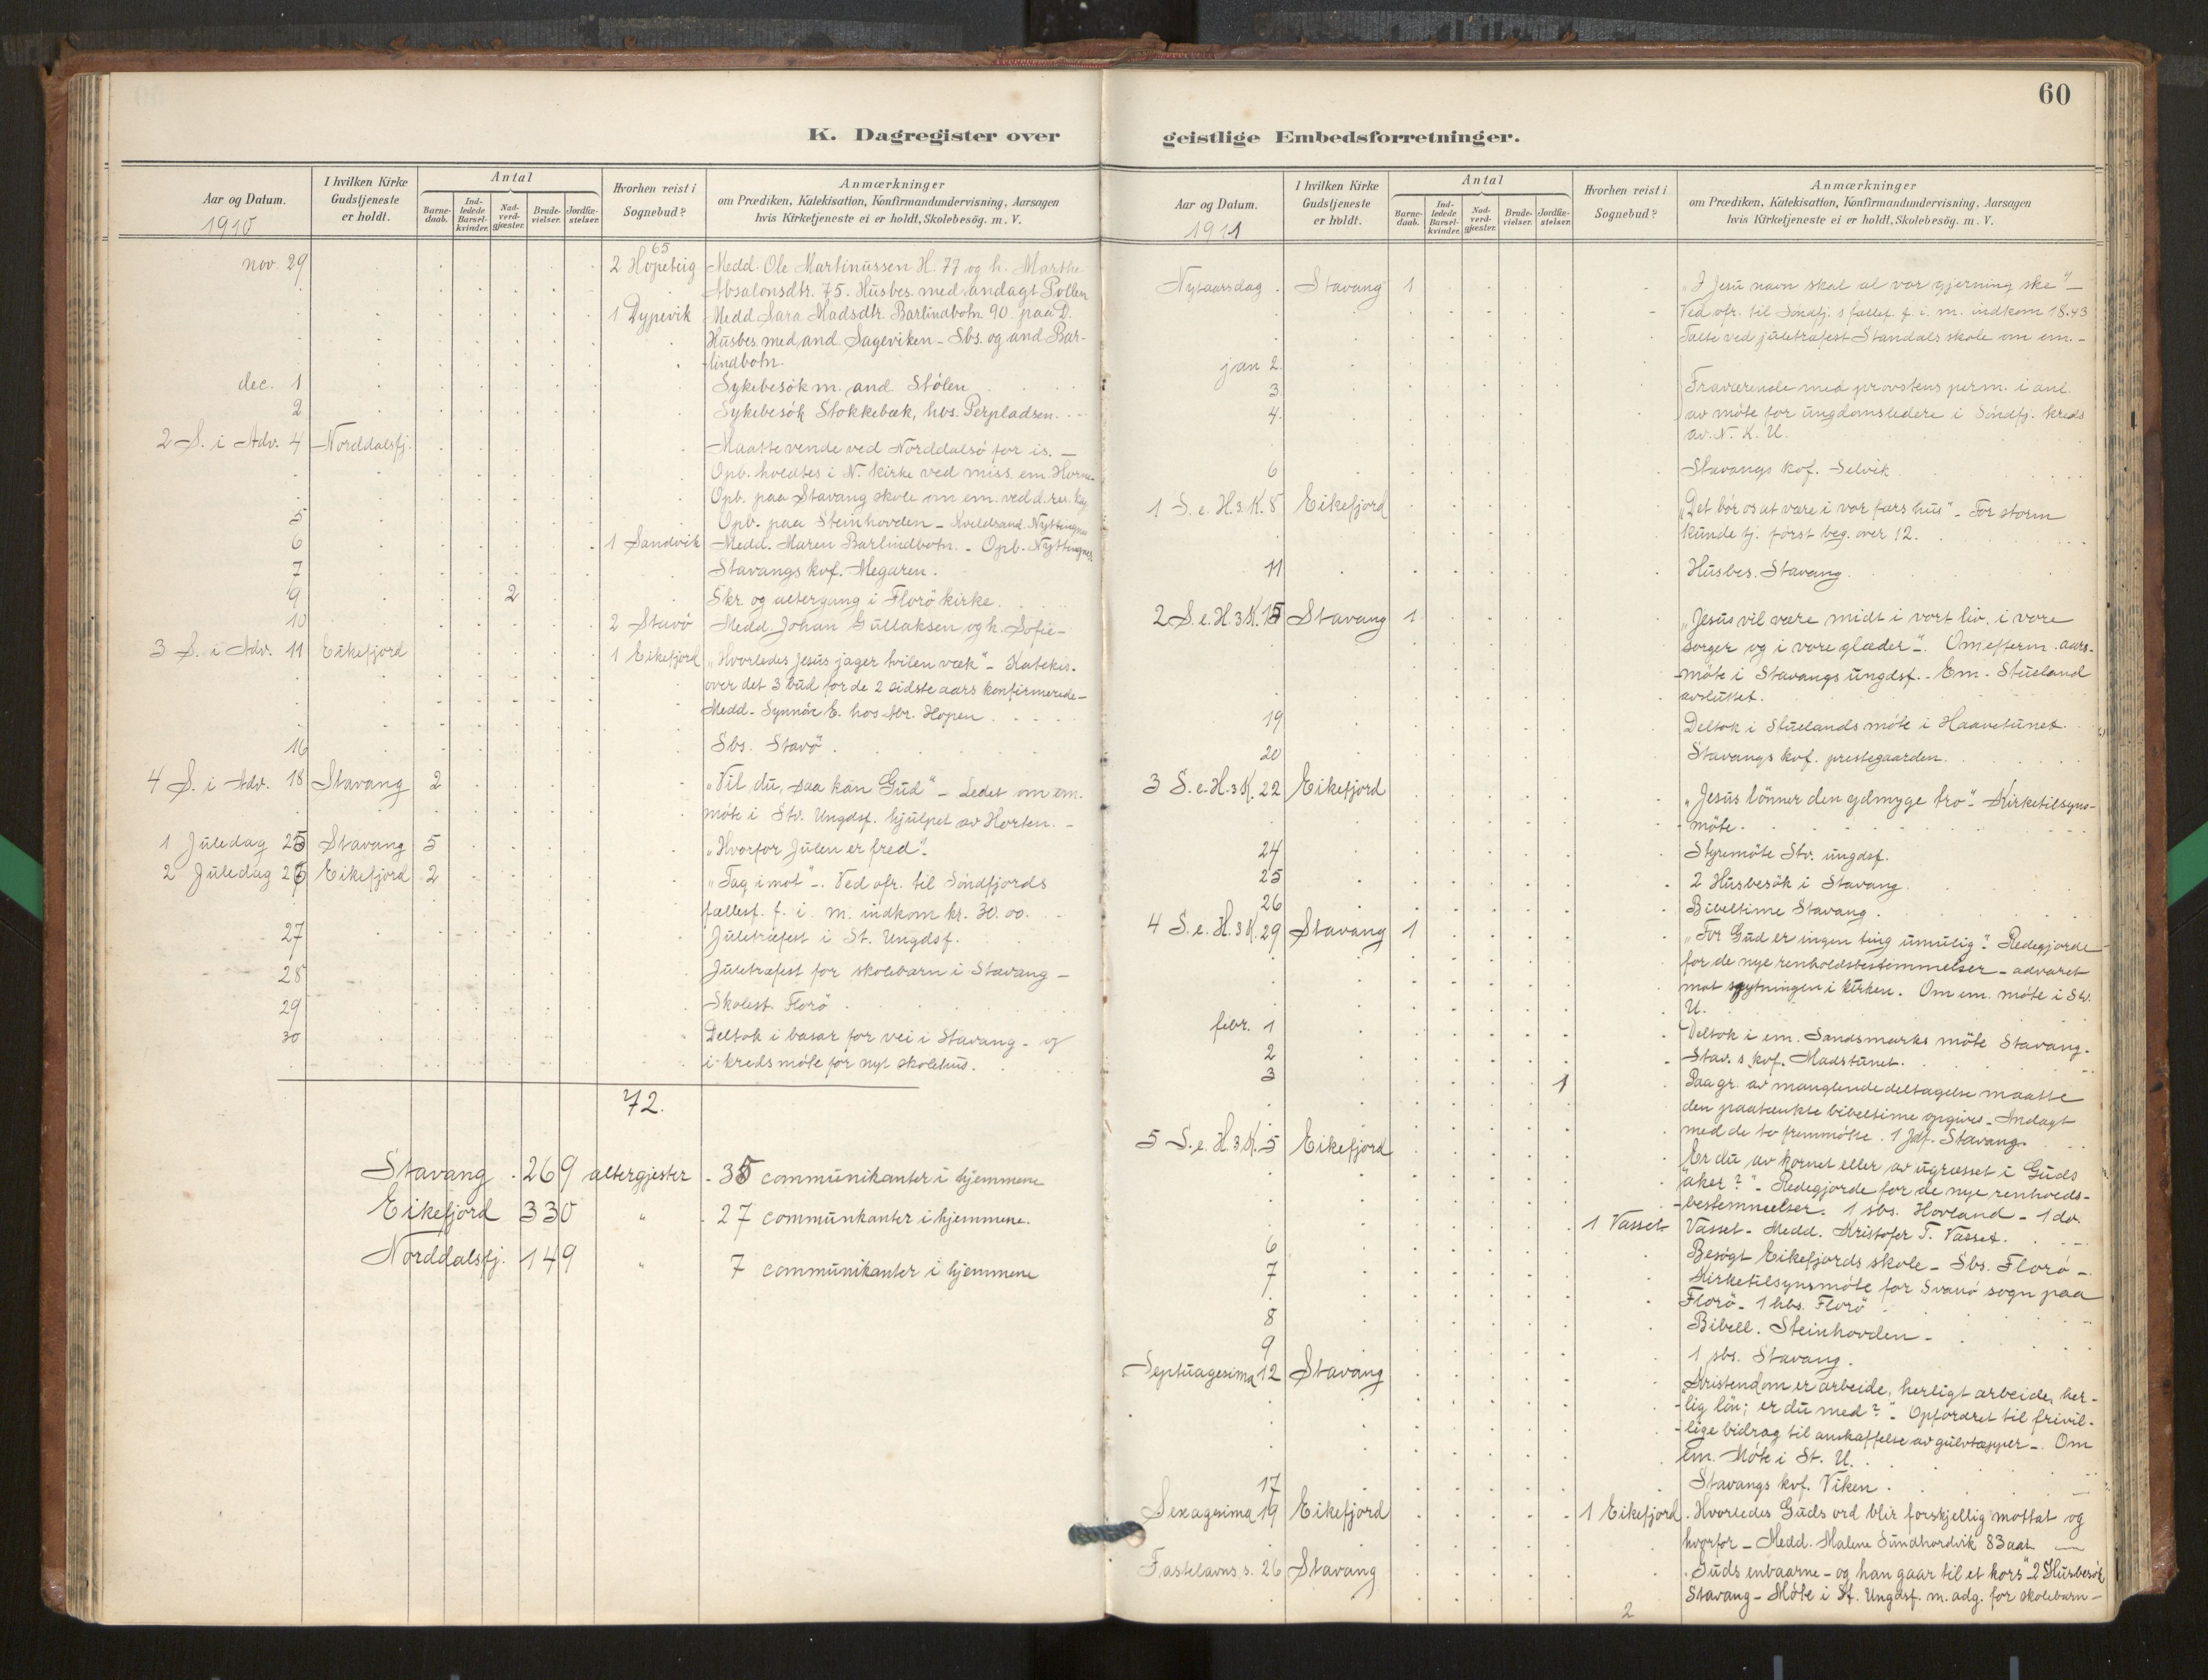 60
K. Dagregister over geistlige Embedsforretninger.
Aar og Datum. 1910
I hvilken Kirke Gudstjeneste er holdt.
Antal
Barnedaab.
Indledede Barselkvinder.
Nadverdgjæster.
Brudevielser.
Jordfæstelser.
Hvorhen reist i Sognebud?
Anmærkninger
om Prædiken, Katekisation, Konfirmandundervisning, Aarsagen
hvis Kirketjeneste ei er holdt, Skolebesög. m. V.
65
nov. 29 2 Hopeteig Medd. Ole Martinussen H. 77 og h. Marthe
Absalonsdtr. 75. Husbes. med andagt Pollen
1 Dypevik Medd Sara Madsdtr Barlindbotn. 90. paa D.
Husbes. med and. Sageviken - Sbs. og and Bar-
lindbotn.
dec. 1 Sykebesök m. and. Stölen
2 Sykebesök Stokkebæk, hbs. Perpladsen.
2 S. i Adv. 4 Norddalsfj. Maatte vende ved Norddalsö for is. -
Opb. holdtes i N. kirke ved miss. em. Horne-
Opb. paa Stavang skole om em. ved d. res. kap.
5 Opb. paa Steinhovden - Kveldsand. Nyttingnes
6 1 Sandvik Medd. Maren Barlindbotn. - Opb. Nyttingnes
7 Stavangs kvf. Megaren.
9 2 Skr. og altergang i Florö kirke.
10 2 Stavö Medd. Johan Gullaksen og h. Sofie -
3 S. i Adv. 11 Eikefjord 1 Eikefjord „Hvorledes Jesus jager tvilen væk" - Katekis.
over det 3 bud for de 2 sidste aars konfirmerede -
Medd. Synnöv E. hos Abr. Hopen
16 Sbs. Stavö.
4 S. i Adv. 18 Stavang 2 „Vil du, saa kan Gud" - Ledet om em.
möte i Stv. Ungdsf. hjulpet av Horten. -
1 Juledag 25 Stavang 5 „Hvorfor Julen er fred".
2 Juledag 26 Eikefjord 2 „Tag imot" -. Ved ofr. til Söndfjords
fællesf. f. i. m. indkom kr. 30.00.
27 Juletræfest i St. Ungdsf.
28 Juletræfest for skolebarn i Stavang -
29 Skolest. Florö
30 Deltok i basar for vei i Stavang - og
i kredsmöte for nyt skolehus.
72.
Stavang 269 altergjester 35 communikanter i hjemmene
Eikefjord 330 " 27 communkanter i hjemmene.
Norddalsfj. 149 " 7 communikanter i hjemmene
Aar og Datum. 1911
I hvilken Kirke Gudstjeneste er holdt.
Antal
Barnedaab.
Indledede Barselkvinder.
Nadverdgjæster.
Brudevielser.
Jordfæstelser.
Hvorhen reist i Sognebud?
Anmærkninger
om Prædiken, Katekisation, Konfirmandundervisning, Aarsagen
hvis Kirketjeneste ei er holdt, Skolebesög. m. V.
Nytaarsdag Stavang 1 „I Jesu navn skal al vor gjerning ske" -
Ved ofr. til Söndfj. s fællesf. f. i. m. indkom 18.43
Talte ved juletræfest Standals skole om em. -
jan 2.
3 Fraværende med provstens perm. i anl.
4. av möte for ungdomsledere i Söndfj. kreds
av. N. K. U.
6 Stavangs kvf. Selvik
1 S. e. H. 3. K. 8 Eikefjord „Det bör os at være i vor fars hus" - For storm
kunde tj. först beg. over 12.
11 Husbes. Stavang.
2 S. e. H. 3 K. 15 Stavang 1 „Jesus vil være midt i vort liv, i vore
sorger og i vore glæder" -. Om efterm. aars-
möte i Stavangs ungdsf. - Em. Stueland
avsluttet.
19 Deltok i Stuelands möte i Haavetunet.
20 Stavangs kvf. prestegaarden.
3 S. e. H. 3 K. 22 Eikefjord „Jesus lönner den ydmyge tro" - Kirketilsyns-
möte.
24 Styremöte Stv. ungdsf.
25 2 Husbesök i Stavang.
26 Bibeltime Stavang.
4 S. e. H. 3 K. 29 Stavang 1 „For Gud er ingen ting umulig". Redegjorde
for de nye renholdsbestemmelser - advaret
mot spytningen i kirken. Om em. möte i Stv.
U.
febr. 1 Deltok i em. Sandsmarks möte Stavang.
2 Stav. s kvf. Madstunet.
3 1 Paa gr. av manglende deltagelse maatte
den paatænkte bibeltime opgives - Andagt
med de to fremmötte. 1 Jdf. Stavang.
5 S. e. H. 3 K. 5 Eikefjord „Er du av kornet eller av ugræsset i Guds
aker?" - Redegjorde for de nye renholds-
bestemmelser. 1 sbs. Hovland - 1 do.
1 Vasset Vasset - Medd. Kristofer T. Vasset.
6 Besögt Eikefjords skole - Sbs. Florö -
7 Kirketilsynsmöte for Svanö sogn paa
Florö - 1 hbs. Florö
8 Bibell. Steinhovden -
9 1 sbs. Stavang.
Septuagesima 12 Stavang „Kristendom er arbeide, herligt arbeide, her-
lig lön; er du med?" - Opfordret til frivil-
lige bidrag til anskaffelse av gulvtæpper -. Om
em. Möte i St. U.
17 Stavangs kvf. Viken.
Sexagesima 19 Eikefjord 1 Eikefjord. Hvorledes Guds ord blir forskjellig mottat og
hvorfor - Medd. Malene Sundhordvik 83 aar -
Fastelavns s. 26 Stavang Guds enbaarne - og han gaar til et kors" 2 Husbesök
Stavang - Möte i St. Ungdsf. m. adg. for skolebarn -
2